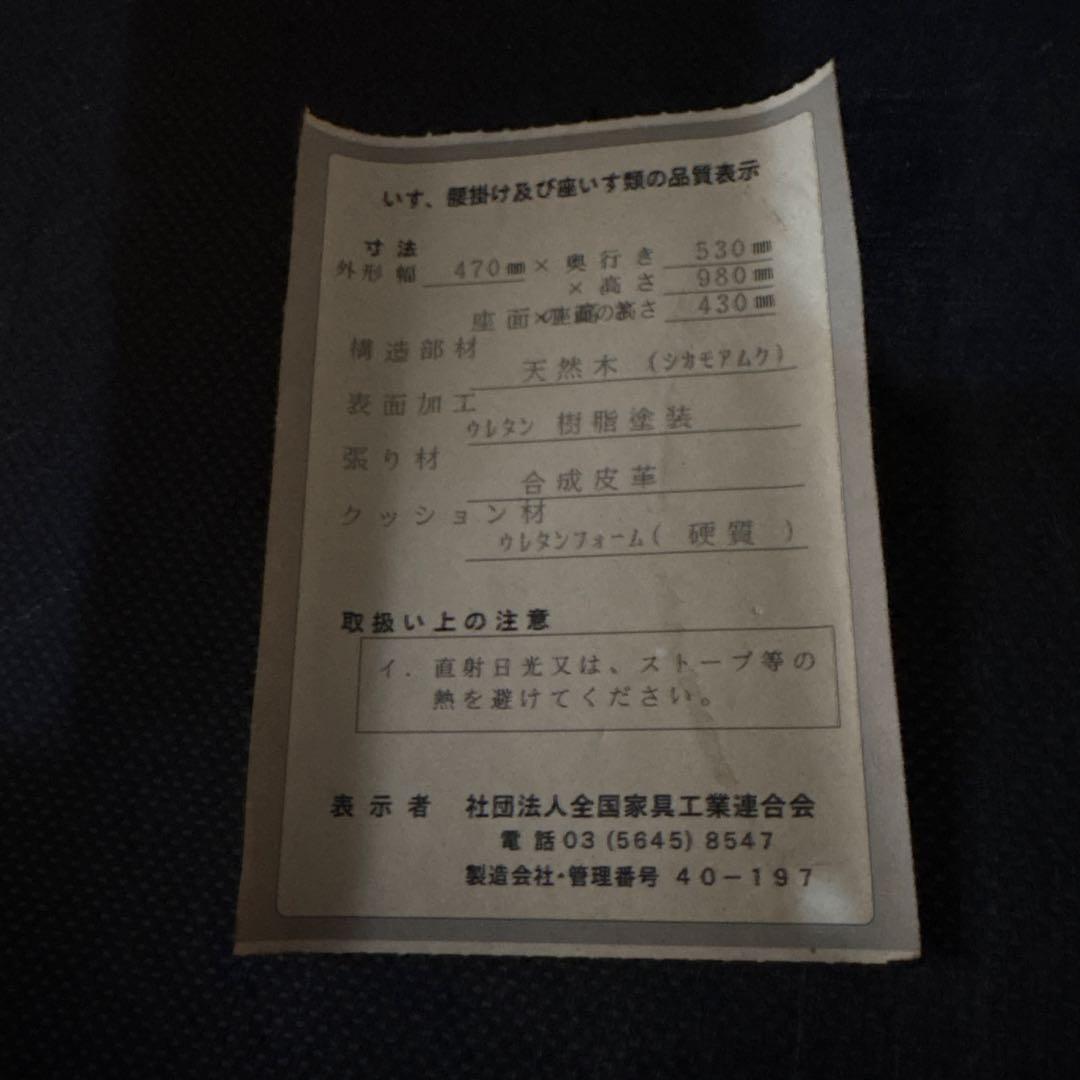 いす、腰掛け及び座いす類の品質表示
寸法
外形幅 470㎜ × 奥行き 530㎜
× 高さ 980㎜
座面の高さ 430㎜
構造部材
天然木 (シカモアムク)
表面加工
ウレタン 樹脂塗装
張り材
合成皮革
クッション材
ウレタンフォーム( 硬質 )
取扱い上の注意
イ. 直射日光又は、ストーブ等の
熱を避けてください。
表示者 社団法人全国家具工業連合会
電話03 (5645) 8547
製造会社・管理番号 40－197